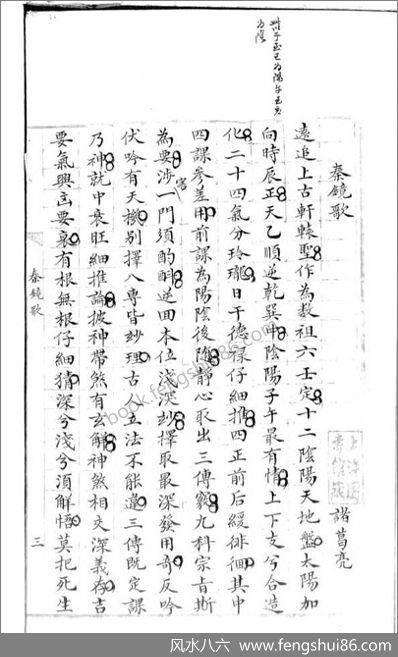 卅子至巳为陽午至亥
为陰
秦鏡歌
諸葛亮
遠追上古軒轅聖作為教祖六壬定十二陰陽天地盤太陽加
向時辰正天乙順逆乾巽中陰陽子午最有情上下支兮合造
化二十四氣分玲瓏日干德祿仔細推四正前后緩徘徊其中
四課參差用前課為陽陰後随靜心取出三傳竅九科宗旨斯
為要涉害一門須酌酙逆回本位浅深妙擇取最深發用奇反吟
伏吟有天機别擇八專皆妙理古人立法不能違三傳既定課
乃神就中衰旺細推論披神帶煞有玄解神煞相交深義存吉
要氣興凶要衰有根無根仔細猜深兮淺兮須解悟莫把死生
秦鏡歌
三
book.fengshui86.com
风水八六 - www.fengshui86.com